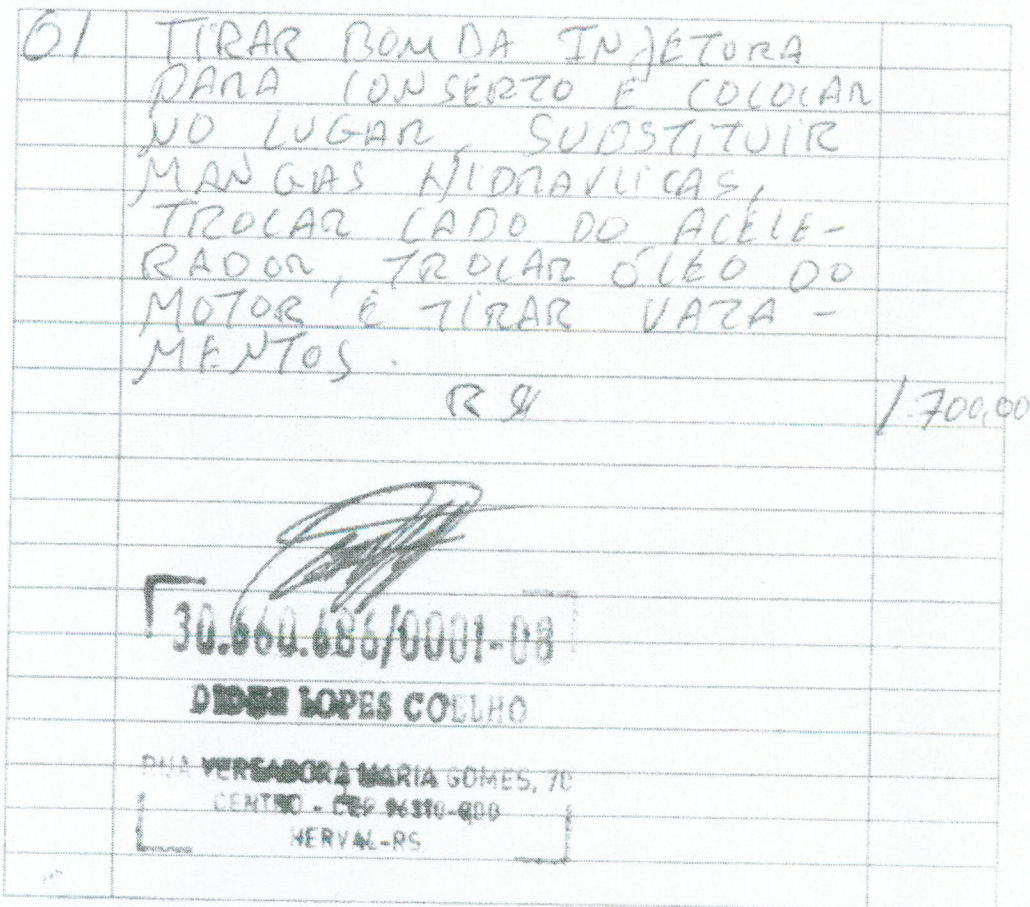 01 TIRAR BOMDA INJETORA
PARA CONSERTO E COLOCAR
NO LUGAR, SUBSTITUIR
MANGAS HIDRAVLICAS,
TROCAR CABO DO ACELE-
RADOR, TROCAR ÓLEO DO
MOTOR E TIRAR VAZA-
MENTOS.
R$ 1.700,00
30.660.686/0001-08
LOPES COELHO
RUA VEREADORA MARIA GOMES, 70
CENTRO - CEP 96310-000
HERVAL-RS